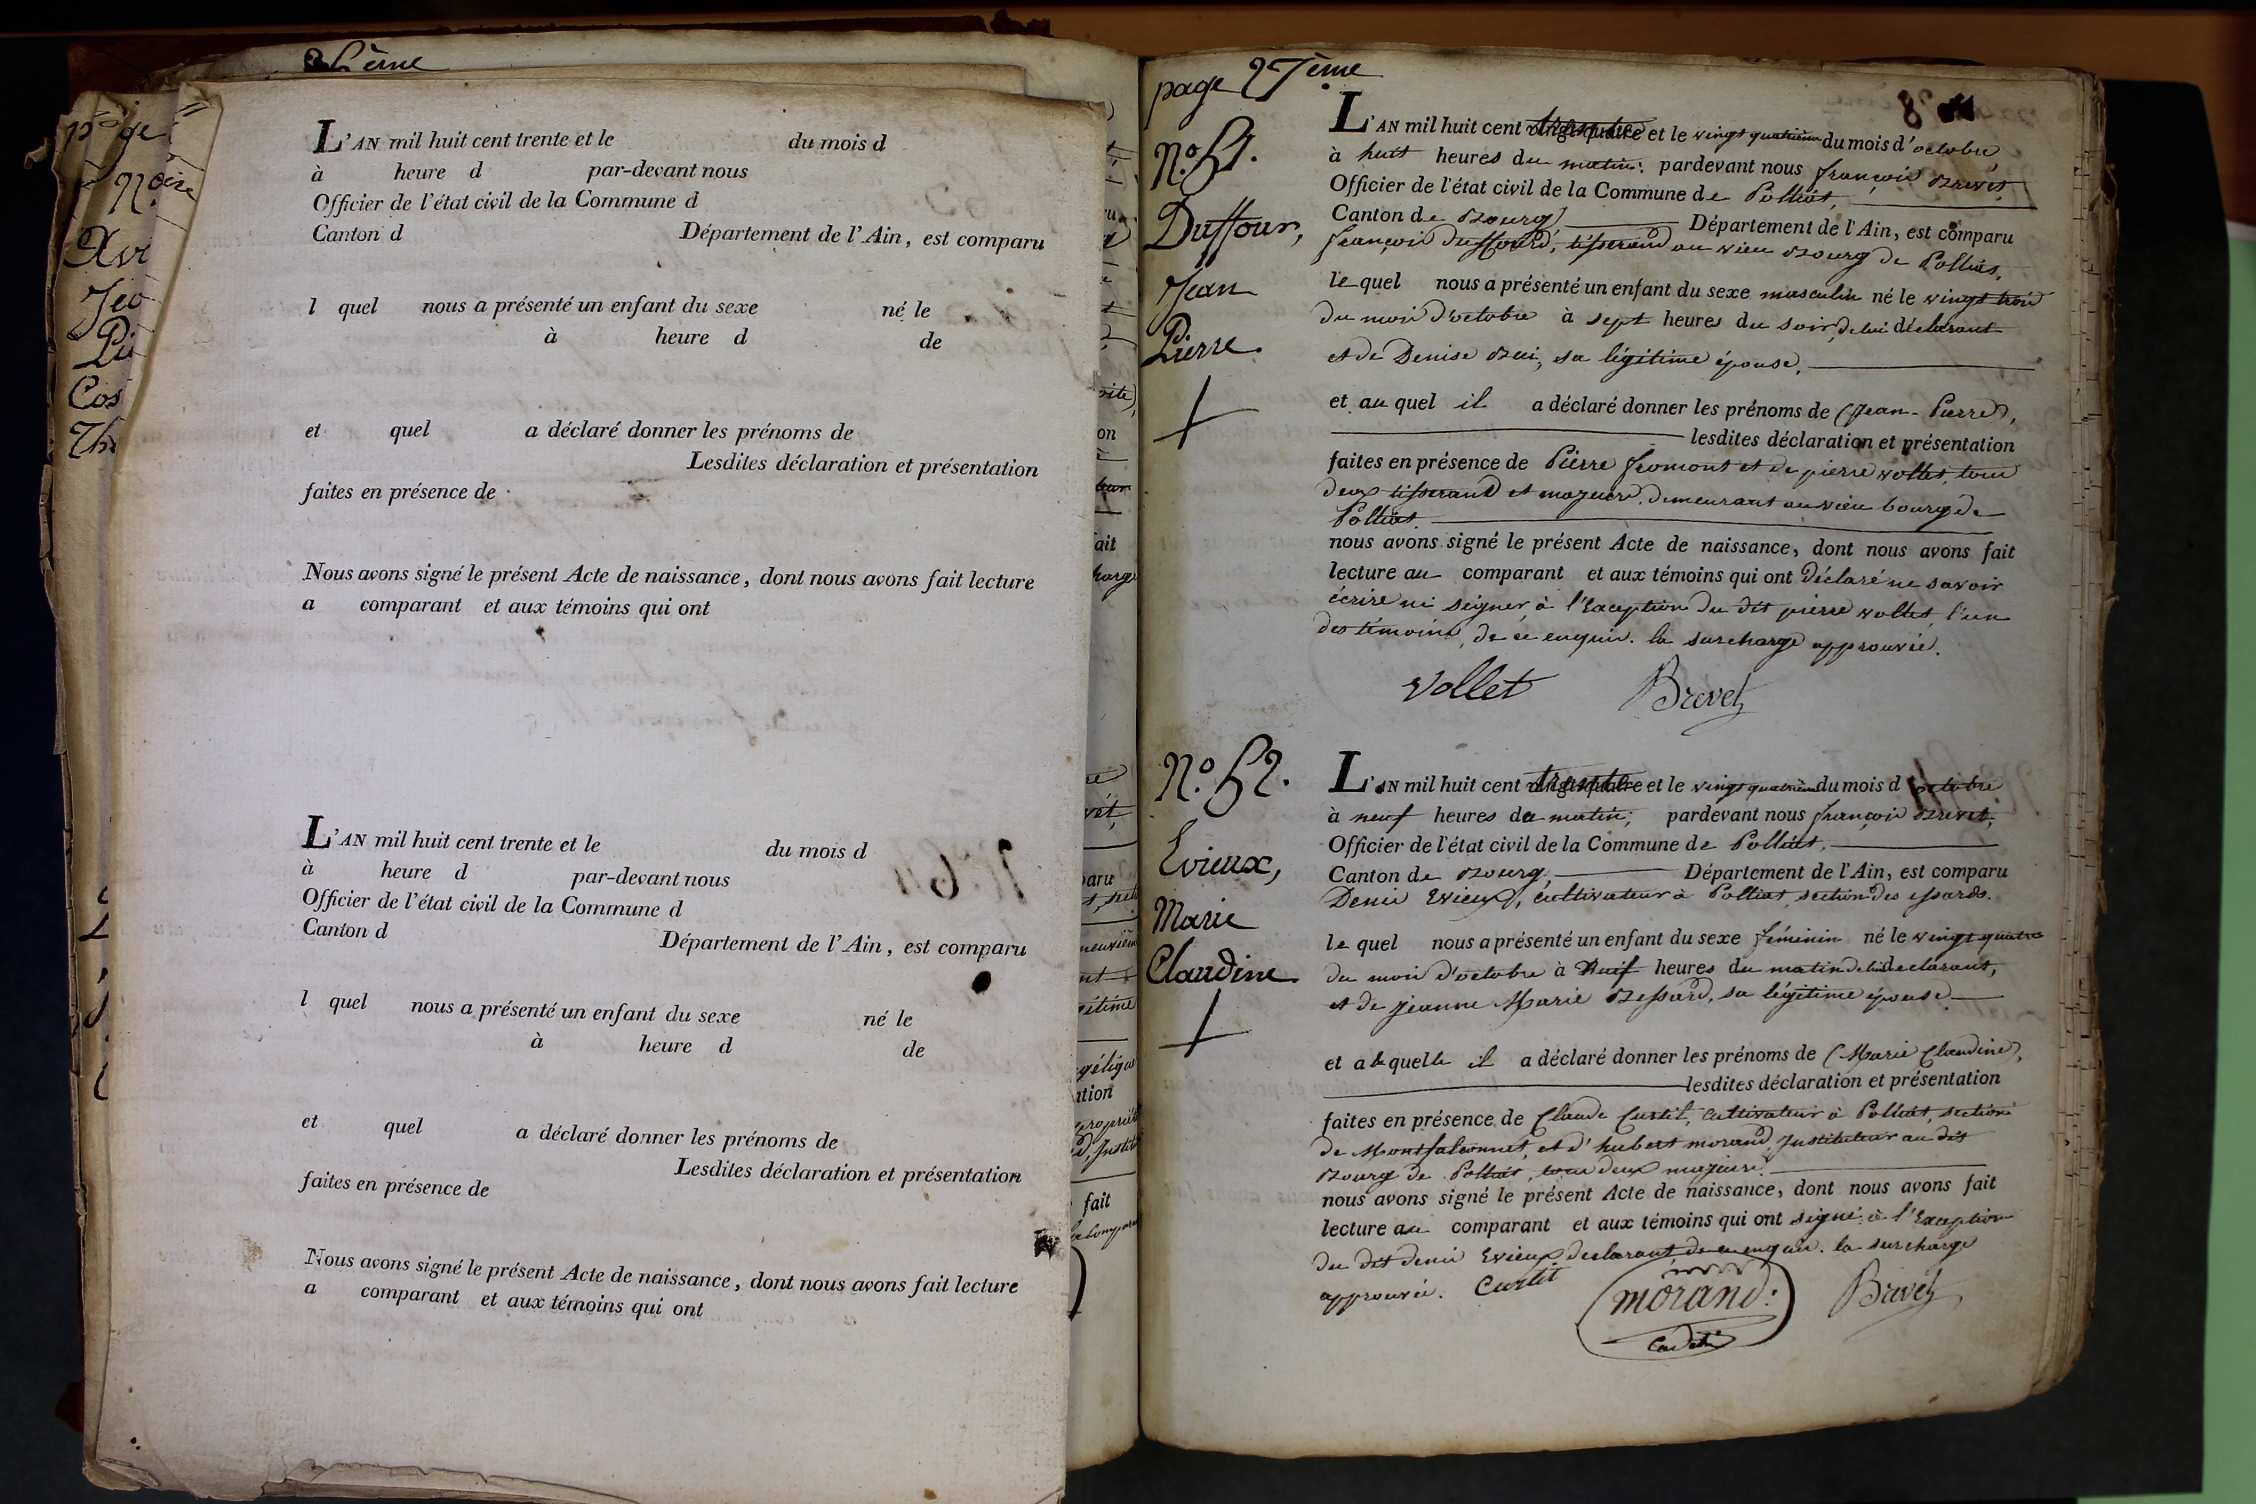 L'AN mil huit cent trente et le du mois d
à heure d par-devant nous
Officier de l'état civil de la Commune d
Canton d Département de l'Ain, est comparu
l quel nous a présenté un enfant du sexe né le
à heure d de
et quel a déclaré donner les prénoms de
Lesdites déclaration et présentation
faites en présence de
Nous avons signé le présent Acte de naissance, dont nous avons fait lecture
a comparant et aux témoins qui ont
L'AN mil huit cent trente et le du mois d
à heure d par-devant nous
Officier de l'état civil de la Commune d
Canton d Département de l'Ain, est comparu
l quel nous a présenté un enfant du sexe né le
à heure d de
et quel a déclaré donner les prénoms de
Lesdites déclaration et présentation
faites en présence de
Nous avons signé le présent Acte de naissance, dont nous avons fait lecture
a comparant et aux témoins qui ont
page 27ème
N.º 51.
Duffour,
Jean
Pierre.
L'AN mil huit cent trente et le vingt quatrième du mois d'octobre
à huit heures du matin: pardevant nous françois Brevet,
Officier de l'état civil de la Commune de Polliat,
Canton de Bourg, Département de l'Ain, est comparu
françois Duffour, tisserand au vieu Bourg de Polliat,
le quel nous a présenté un enfant du sexe masculin né le vingt trois
du mois d'octobre à sept heures du soir, de lui déclarant
et de Denise Bui, sa légitime épouse.
et au quel il a déclaré donner les prénoms de (Jean-Pierre),
lesdites déclaration et présentation
faites en présence de Pierre fromont et de pierre vollet, tous
deux tisserand et majeurs, demeurant au vieu bourg de
Polliat.
nous avons signé le présent Acte de naissance, dont nous avons fait
lecture au comparant et aux témoins qui ont déclaré ne savoir
écrire ni signer à l'exception du dit pierre vollet, l'un
des témoins, de ce enquis. la surcharge approuvée.
Vollet Brevet
N.º 52.
Evieux,
Marie
Claudine
L'AN mil huit cent trente et le vingt quatrième du mois d octobre
à neuf heures du matin; pardevant nous françois Brevet,
Officier de l'état civil de la Commune de Polliat,
Canton de Bourg, Département de l'Ain, est comparu
Denis Evieux, cultivateur à Polliat, section des essards.
le quel nous a présenté un enfant du sexe féminin né le vingt quatre
du mois d'octobre à huit heures du matin de lui declarant,
et de jeanne Marie Bessard, sa légitime épouse
et a la quelle il a déclaré donner les prénoms de (Marie Claudine),
lesdites déclaration et présentation
faites en présence de Claude Curtil, cultivateur à Polliat, section
de Montfalconnet, et d'hubert morand, Instituteur au dit
Bourg de Polliat, tous deux majeurs.
nous avons signé le présent Acte de naissance, dont nous avons fait
lecture au comparant et aux témoins qui ont signé à l'exception
du dit denis Evieux declarant de ce enquis. la surcharge
approuvée. Curtil morand: Brevet